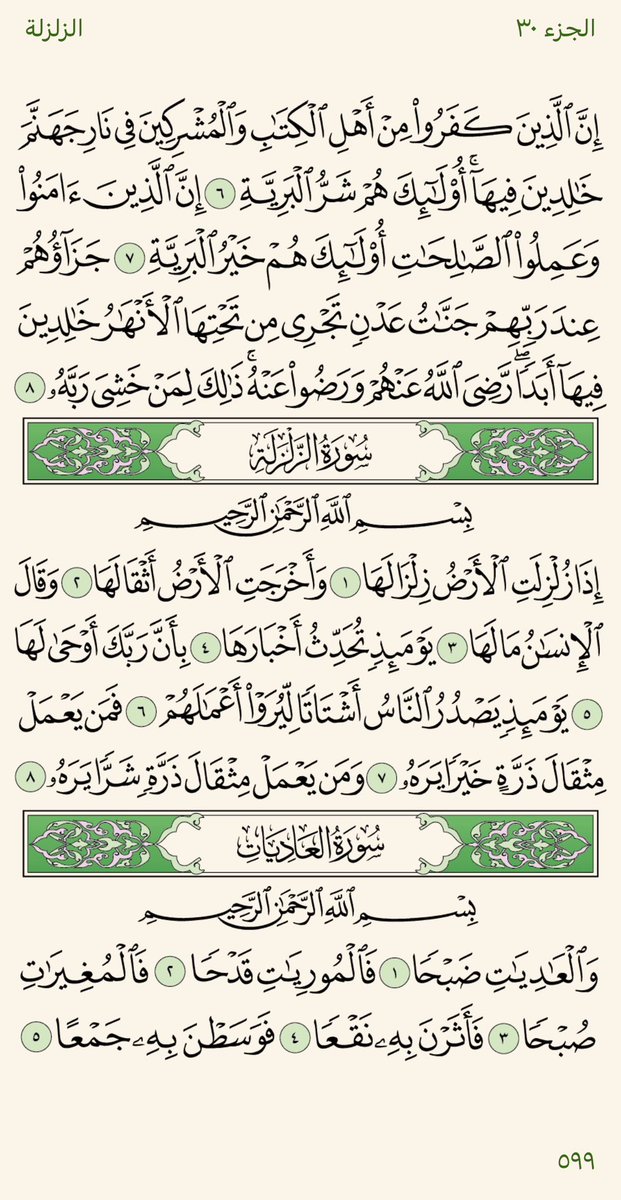 الجزء ٣٠
الزلزلة
إِنَّ ٱلَّذِينَ كَفَرُوا۟ مِنْ أَهْلِ ٱلْكِتَٰبِ وَٱلْمُشْرِكِينَ فِى نَارِ جَهَنَّمَ
خَٰلِدِينَ فِيهَآ ۚ أُو۟لَٰٓئِكَ هُمْ شَرُّ ٱلْبَرِيَّةِ ٦ إِنَّ ٱلَّذِينَ ءَامَنُوا۟
وَعَمِلُوا۟ ٱلصَّٰلِحَٰتِ أُو۟لَٰٓئِكَ هُمْ خَيْرُ ٱلْبَرِيَّةِ ٧ جَزَآؤُهُمْ
عِندَ رَبِّهِمْ جَنَّٰتُ عَدْنٍ تَجْرِى مِن تَحْتِهَا ٱلْأَنْهَٰرُ خَٰلِدِينَ
فِيهَآ أَبَدًا ۖ رَّضِىَ ٱللَّهُ عَنْهُمْ وَرَضُوا۟ عَنْهُ ۚ ذَٰلِكَ لِمَنْ خَشِىَ رَبَّهُۥ ٨
سُورَةُ الزَّلْزَلَةِ
بِسْمِ ٱللَّهِ ٱلرَّحْمَٰنِ ٱلرَّحِيمِ
إِذَا زُلْزِلَتِ ٱلْأَرْضُ زِلْزَالَهَا ١ وَأَخْرَجَتِ ٱلْأَرْضُ أَثْقَالَهَا ٢ وَقَالَ
ٱلْإِنسَٰنُ مَا لَهَا ٣ يَوْمَئِذٍ تُحَدِّثُ أَخْبَارَهَا ٤ بِأَنَّ رَبَّكَ أَوْحَىٰ لَهَا
٥ يَوْمَئِذٍ يَصْدُرُ ٱلنَّاسُ أَشْتَاتًا لِّيُرَوْا۟ أَعْمَٰلَهُمْ ٦ فَمَن يَعْمَلْ
مِثْقَالَ ذَرَّةٍ خَيْرًا يَرَهُۥ ٧ وَمَن يَعْمَلْ مِثْقَالَ ذَرَّةٍ شَرًّا يَرَهُۥ ٨
سُورَةُ العَادِيَاتِ
بِسْمِ ٱللَّهِ ٱلرَّحْمَٰنِ ٱلرَّحِيمِ
وَٱلْعَٰدِيَٰتِ ضَبْحًا ١ فَٱلْمُورِيَٰتِ قَدْحًا ٢ فَٱلْمُغِيرَٰتِ
صُبْحًا ٣ فَأَثَرْنَ بِهِۦ نَقْعًا ٤ فَوَسَطْنَ بِهِۦ جَمْعًا ٥
٥٩٩